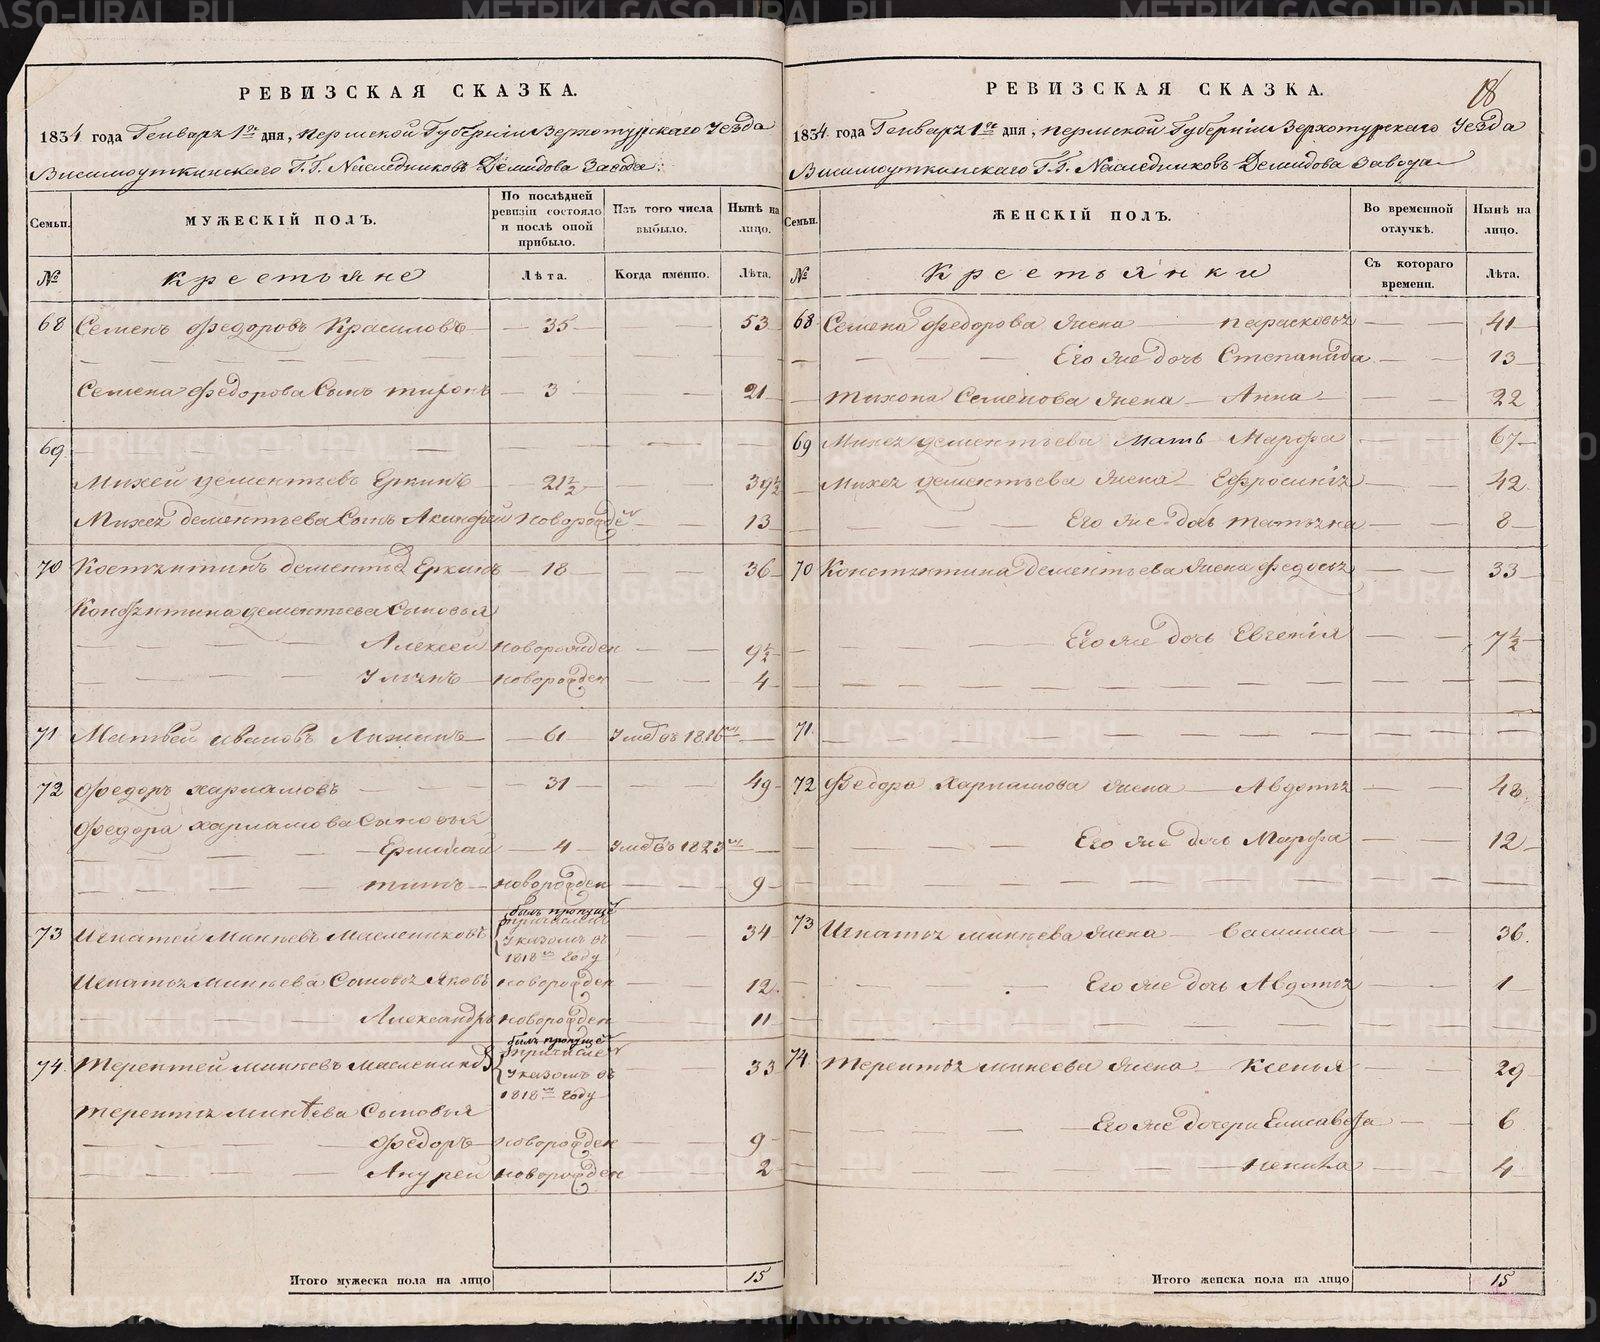 РЕВИЗСКАЯ СКАЗКА.
1834 года Генваря 1го дня, Пермской Губернiи Верхотурскаго Уезда
Висимоуткинскаго Г.Г. Наследниковъ Демидова Завода:
Семьи.
МУЖЕСКIЙ ПОЛЪ.
По послѣдней ревизiи состояло и послѣ оной прибыло.
Изъ того числа выбыло.
Нынѣ на лицо.
№
Крестьяне
Лѣта.
Когда именно.
Лѣта.
68 Семенъ Федоровъ Красиловъ 35 53
Семена Федорова Сынъ Тихонъ 3 21
69
Михей Дементьевъ Еркинъ 21½ 39½
Михея Дементьева Сынъ Акинфей новорожде 13
70 Костянтинъ Дементье Еркинъ 18 36
Констянтина Дементьева Сыновья
Алексей новорожден 9½
новорожден 4
71 Матвей Ивановъ 61 Умеръ 1816
72 Федоръ Харламовъ 31 49
Федора Харламова Сыновья
Ермолай 4 Умеръ 1823
Титъ новорожден 9
73 Игнатей Минеевъ Маслениковъ былъ пропуще причислен Указомъ въ 1818м Году 34
Игнатья Минеева Сыновья Яковъ новорожден 12
Александръ новорожден 11
74 Терентей Минеевъ Маслеников былъ пропуще причислен Указомъ въ 1818м Году 33
Терентья Минѣева Сыновья
Федоръ новорожден 9
Андрей новорожден 2
Итого мужеска пола на лицо 15
18
РЕВИЗСКАЯ СКАЗКА.
1834 года Генваря 1го дня, Пермской Губернiи Верхотурскаго Уезда
Висимоуткинскаго Г.Г. Наследниковъ Демидова Завода
Семьи.
ЖЕНСКIЙ ПОЛЪ.
Во временной отлучкѣ.
Нынѣ на лицо.
№
Крестьянки
Съ котораго времени.
Лѣта.
68 Семена Федорова жена Парасковья 41
Его же дочь Степанида 13
Тихона Семенова жена Анна 22
69 Михея Дементьева мать Марфа 67
Михея Дементьева жена Ефросинiя 42
Его же дочь Татьяна 8
70 Констянтина Дементьева жена Федосья 33
Его же дочь Евгенiя 7½
71
72 Федора Харламова жена Авдотья 48
Его же дочь Марфа 12
73 Игнатья Минеева жена Василиса 36
Его же дочь Авдотья 1
74 Терентья Минеева жена Ксенья 29
Его же дочери Елисавета 6
4
Итого женска пола на лицо 15
METRIKI.GASO-URAL.RU